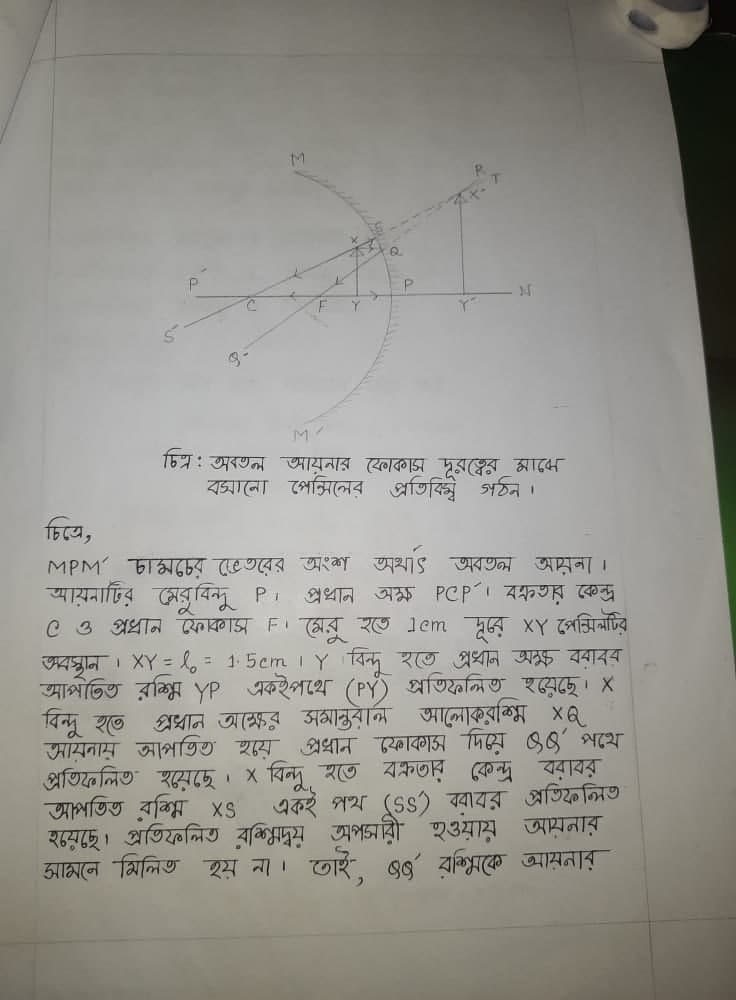 M
R
T
X'
S
X
Q
P'
C
F
Y
P
Y'
N
S'
Q'
M'
চিত্র: অবতল আয়নার ফোকাস দূরত্বের মাঝে
বসানো পেন্সিলের প্রতিবিম্ব গঠন।
চিত্রে,
MPM' চামচের ভেতরের অংশ অর্থাৎ অবতল আয়না।
আয়নাটির মেরুবিন্দু P। প্রধান অক্ষ PCP'। বক্রতার কেন্দ্র
C ও প্রধান ফোকাস F। মেরু হতে 1cm দূরে XY পেন্সিলটির
অবস্থান। XY = l₀ = 1.5cm। Y বিন্দু হতে প্রধান অক্ষ বরাবর
আপতিত রশ্মি YP একইপথে (PY) প্রতিফলিত হয়েছে। X
বিন্দু হতে প্রধান অক্ষের সমান্তরাল আলোকরশ্মি XQ
আয়নায় আপতিত হয়ে প্রধান ফোকাস দিয়ে QQ' পথে
প্রতিফলিত হয়েছে। X বিন্দু হতে বক্রতার কেন্দ্র বরাবর
আপতিত রশ্মি XS একই পথ (SS') বরাবর প্রতিফলিত
হয়েছে। প্রতিফলিত রশ্মিদ্বয় অপসারী হওয়ায় আয়নার
সামনে মিলিত হয় না। তাই, QQ' রশ্মিকে আয়নার